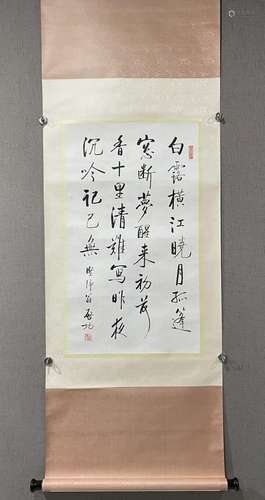 白露横江晓月孤篷
窓断夢醒来初荷
香十里清難写昨夜
沉吟記已無
启功